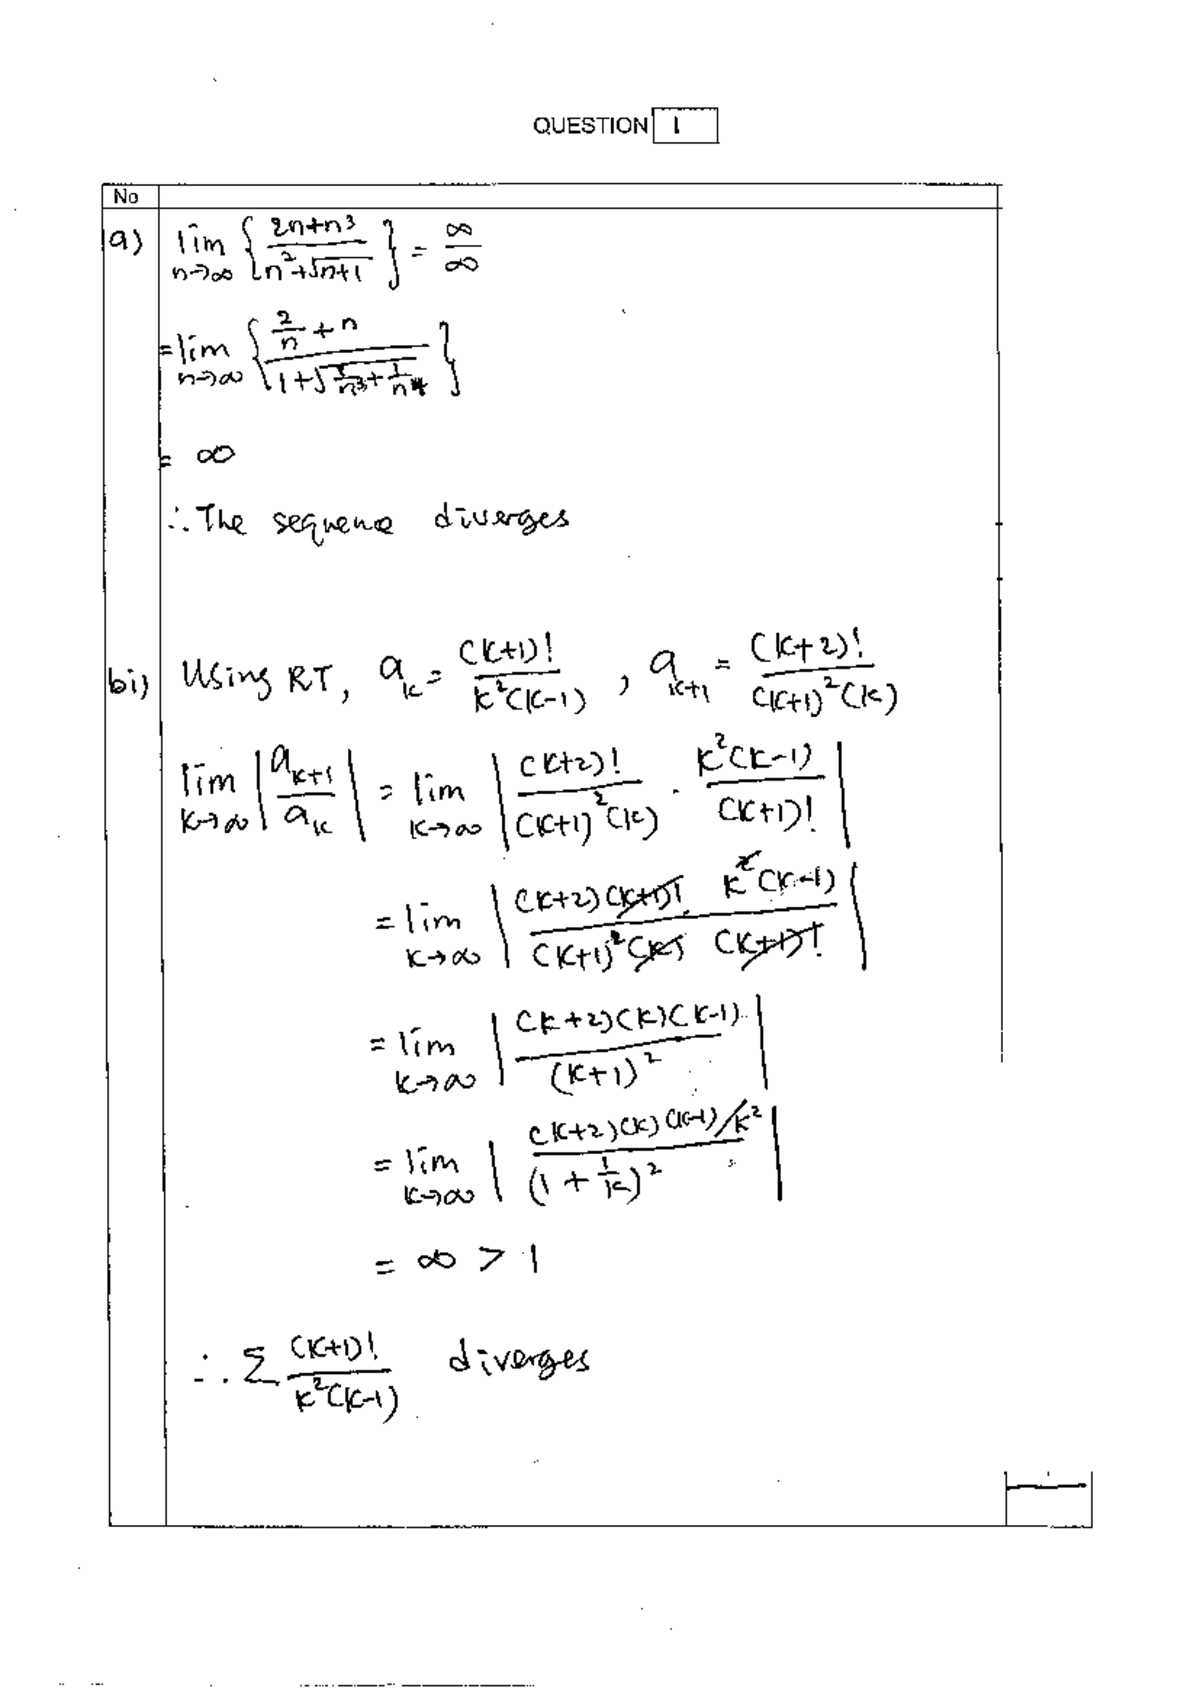 QUESTION 1
No
a) lim n→∞ { (2n+n³)/(n²+√(n+1)) } = ∞/∞
= lim n→∞ { (2/n + n)/(1+√(1/n³+1/n⁴)) }
= ∞
∴ The sequence diverges
bi) Using RT, a_k = (k+1)!/(k²(k-1)) , a_{k+1} = (k+2)!/((k+1)²(k))
lim k→∞ |a_{k+1}/a_k| = lim k→∞ | (k+2)!/((k+1)²(k)) · k²(k-1)/(k+1)! |
= lim k→∞ | (k+2)(k+1)! k²(k-1) / ((k+1)²(k) (k+1)!) |
= lim k→∞ | (k+2)(k)(k-1)/(k+1)² |
= lim k→∞ | (k+2)(k)(k-1)/k² / (1+1/k)² |
= ∞ > 1
∴ Σ (k+1)!/(k²(k-1)) diverges